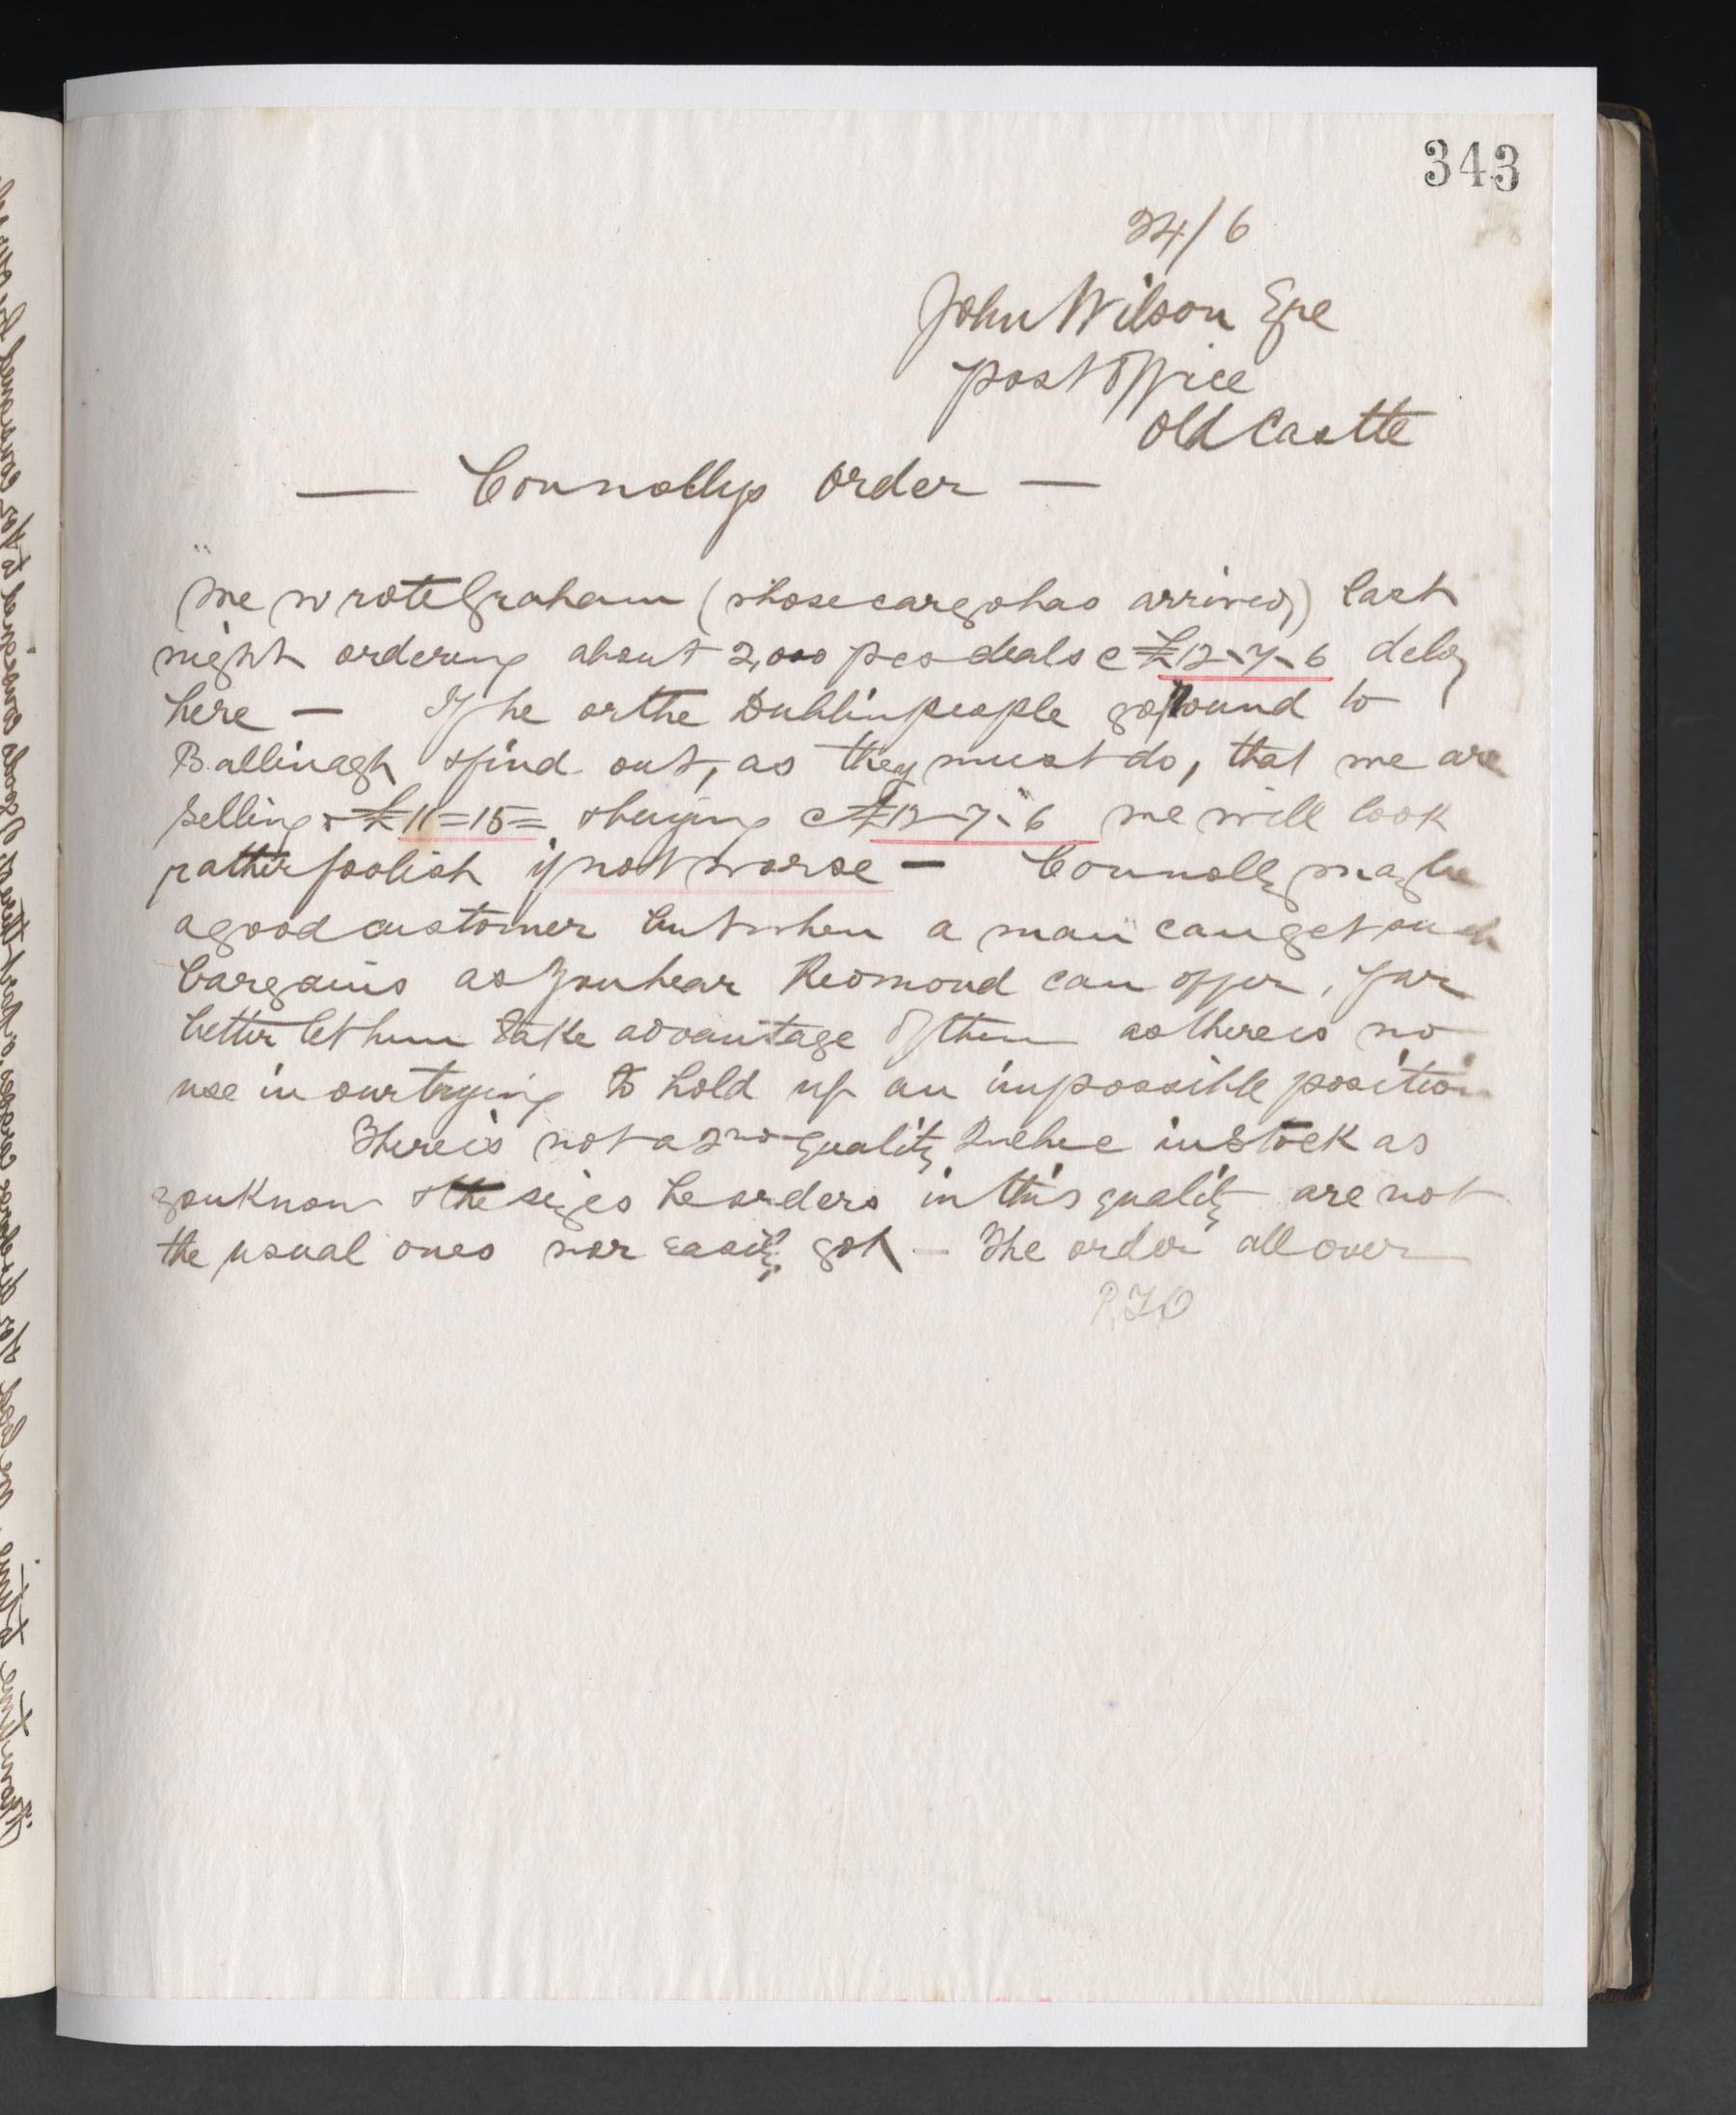 343
24/6
John Wilson Eqre
post office
Old Castle
— Connollys order —
We wrote Graham (whose cargo has arrived) last
night ordering about 2,000 pcs deals @ £12-7-6 dely
here — If he or the Dublin people go round to
Ballinagh & find out, as they must do, that we are
selling @ £11=15= & buying @ £12-7-6 we will look
rather foolish if not worse — Connolly may be
a good customer but when a man can get such
bargains as you hear Redmond can offer, far
better let him take advantage of them as there is no
use in our trying to hold up an impossible position
There is not a 2nd quality Quebec in stock as
you know & the sizes he orders in this quality are not
the usual ones nor easily got — The order all over
P.T.O